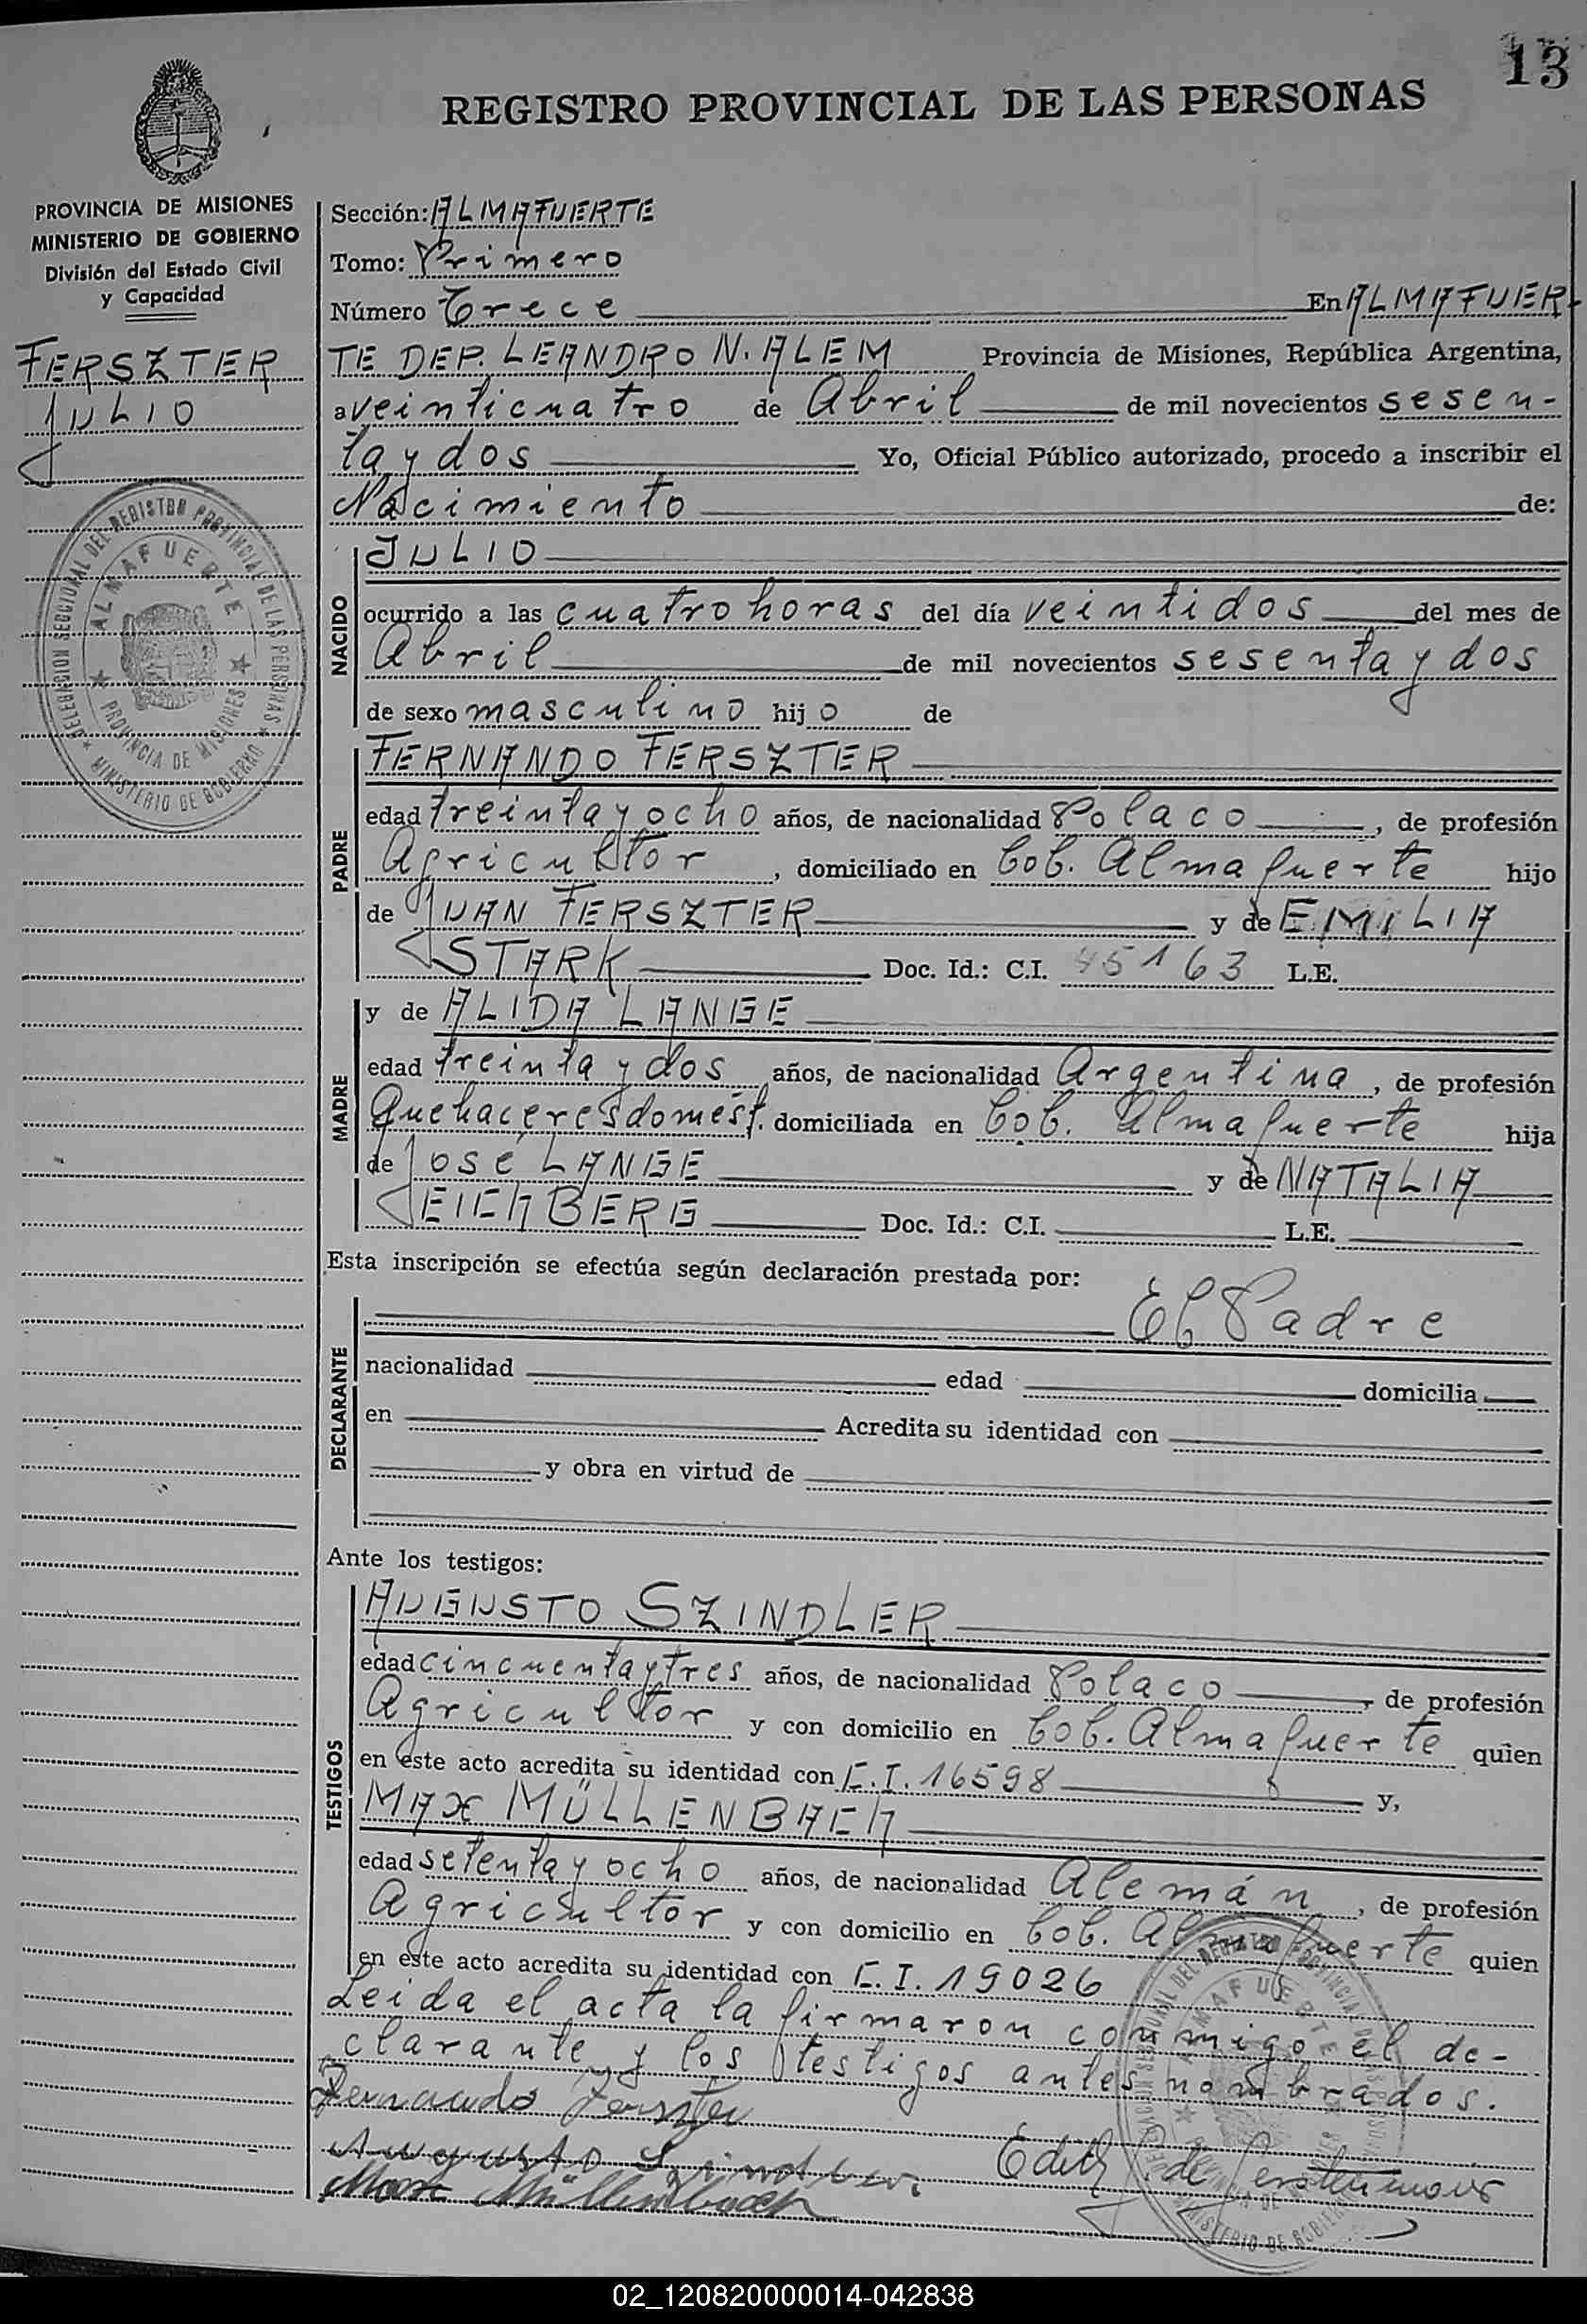 13
REGISTRO PROVINCIAL DE LAS PERSONAS
PROVINCIA DE MISIONES
MINISTERIO DE GOBIERNO
División del Estado Civil
y Capacidad
FERSZTER
JULIO
DELEGACION SECCIONAL DEL REGISTRO PROVINCIAL DE LAS PERSONAS
ALMAFUERTE
PROVINCIA DE MISIONES
MINISTERIO DE GOBIERNO
Sección: ALMAFUERTE
Tomo: Primero
Número Trece En ALMAFUER-
TE DEP. LEANDRO N. ALEM Provincia de Misiones, República Argentina,
a veinticuatro de Abril de mil novecientos sesen-
ta y dos Yo, Oficial Público autorizado, procedo a inscribir el
Nacimiento de:
NACIDO
JULIO
ocurrido a las cuatro horas del día veintidos del mes de
Abril de mil novecientos sesenta y dos
de sexo masculino hijo de
PADRE
FERNANDO FERSZTER
edad treinta y ocho años, de nacionalidad Polaco, de profesión
Agricultor, domiciliado en Col. Almafuerte hijo
de JUAN FERSZTER y de EMILIA
STARK Doc. Id.: C.I. 45163 L.E.
MADRE
y de ALIDA LANGE
edad treinta y dos años, de nacionalidad Argentina, de profesión
Quehaceres domést. domiciliada en Col. Almafuerte hija
de José LANGE y de NATALIA
EICHBERG Doc. Id.: C.I. L.E.
Esta inscripción se efectúa según declaración prestada por:
DECLARANTE
El Padre
nacionalidad edad domicilia
en Acredita su identidad con
y obra en virtud de
Ante los testigos:
TESTIGOS
AUGUSTO SZINDLER
edad cincuenta y tres años, de nacionalidad Polaco, de profesión
Agricultor y con domicilio en Col. Almafuerte quien
en este acto acredita su identidad con C.I. 16598 y,
MAX MÜLLENBACH
edad setenta y ocho años, de nacionalidad Alemán, de profesión
Agricultor y con domicilio en Col. Almafuerte quien
en este acto acredita su identidad con C.I. 19026
Leida el acta la firmaron conmigo el de-
clarante y los testigos antes nombrados.
Fernando Ferszter
Augusto Szindler
Max Müllenbach
Edith de
02_120820000014-042838